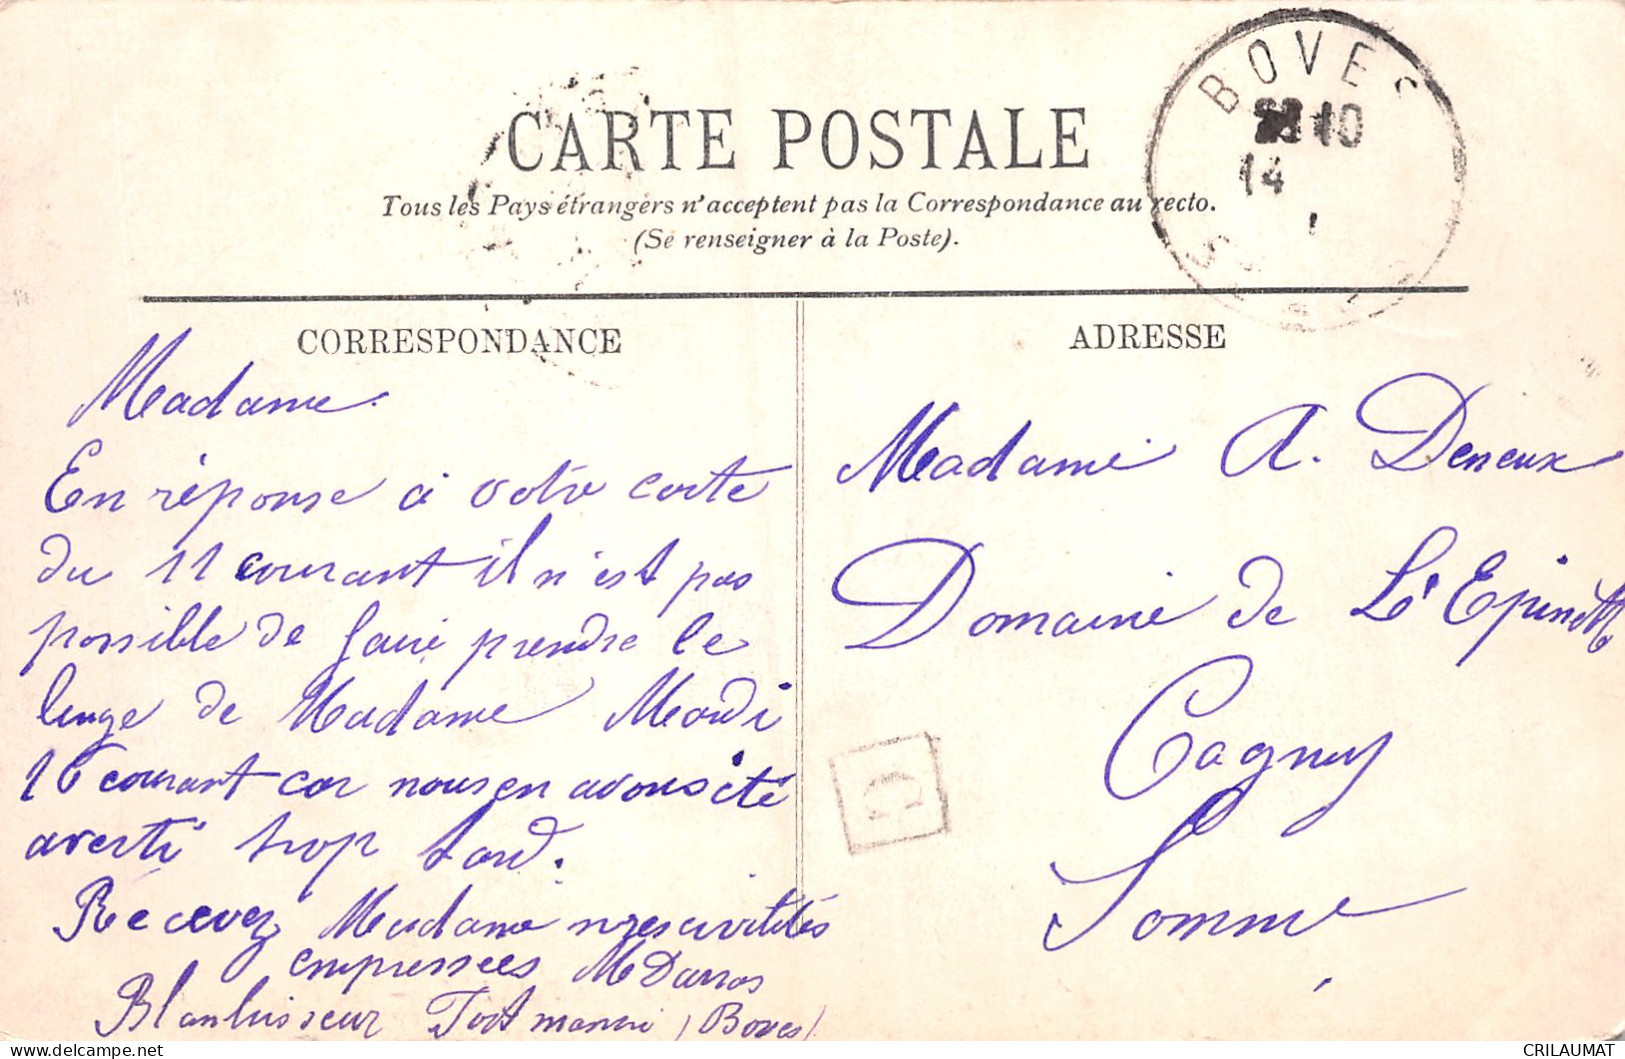 CARTE POSTALE
Tous les Pays étrangers n'acceptent pas la Correspondance au recto.
(Se renseigner à la Poste).
BOVES
10
14
CORRESPONDANCE
Madame.
En réponse à votre carte
du 11 courant il n'est pas
possible de faire prendre le
linge de Madame Mardi
16 courant car nous en avons été
averti trop tard.
Recevez Madame nos civilités
empressées M Darras
Blanchisseur Fortmanoir (Boves)
ADRESSE
Madame A. Deneux
Domaine de L'Epinette
Cagny
Somme
CRILAUMAT